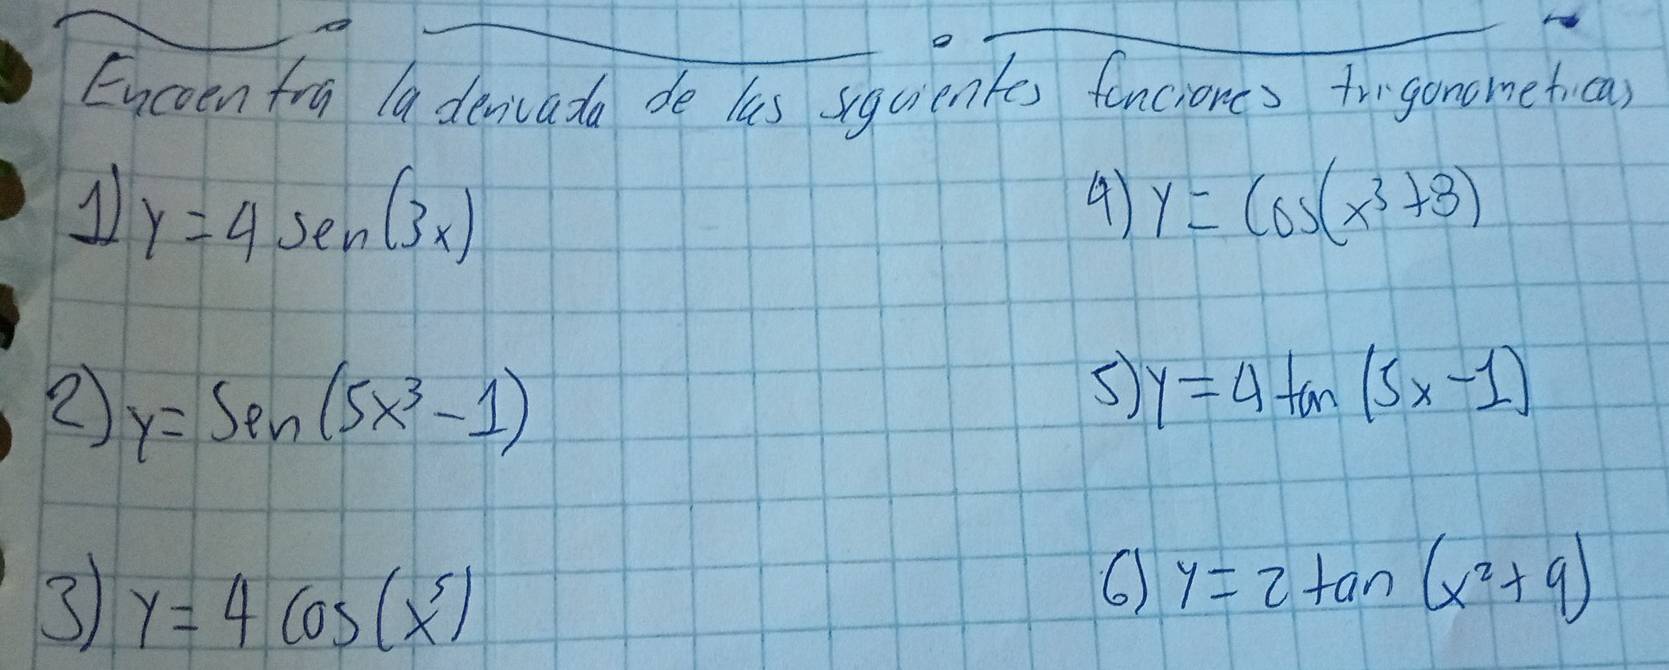 Encoentra la derivada de las siguientes funciones trigonometricas
1) y = 4 sen(3x)
2) y = Sen(5x³ - 1)
3) y = 4 cos(x⁵)
4) y = Cos(x³ + 8)
5) y = 4 tan (5x - 1)
6) y = 2 tan (x² + 9)